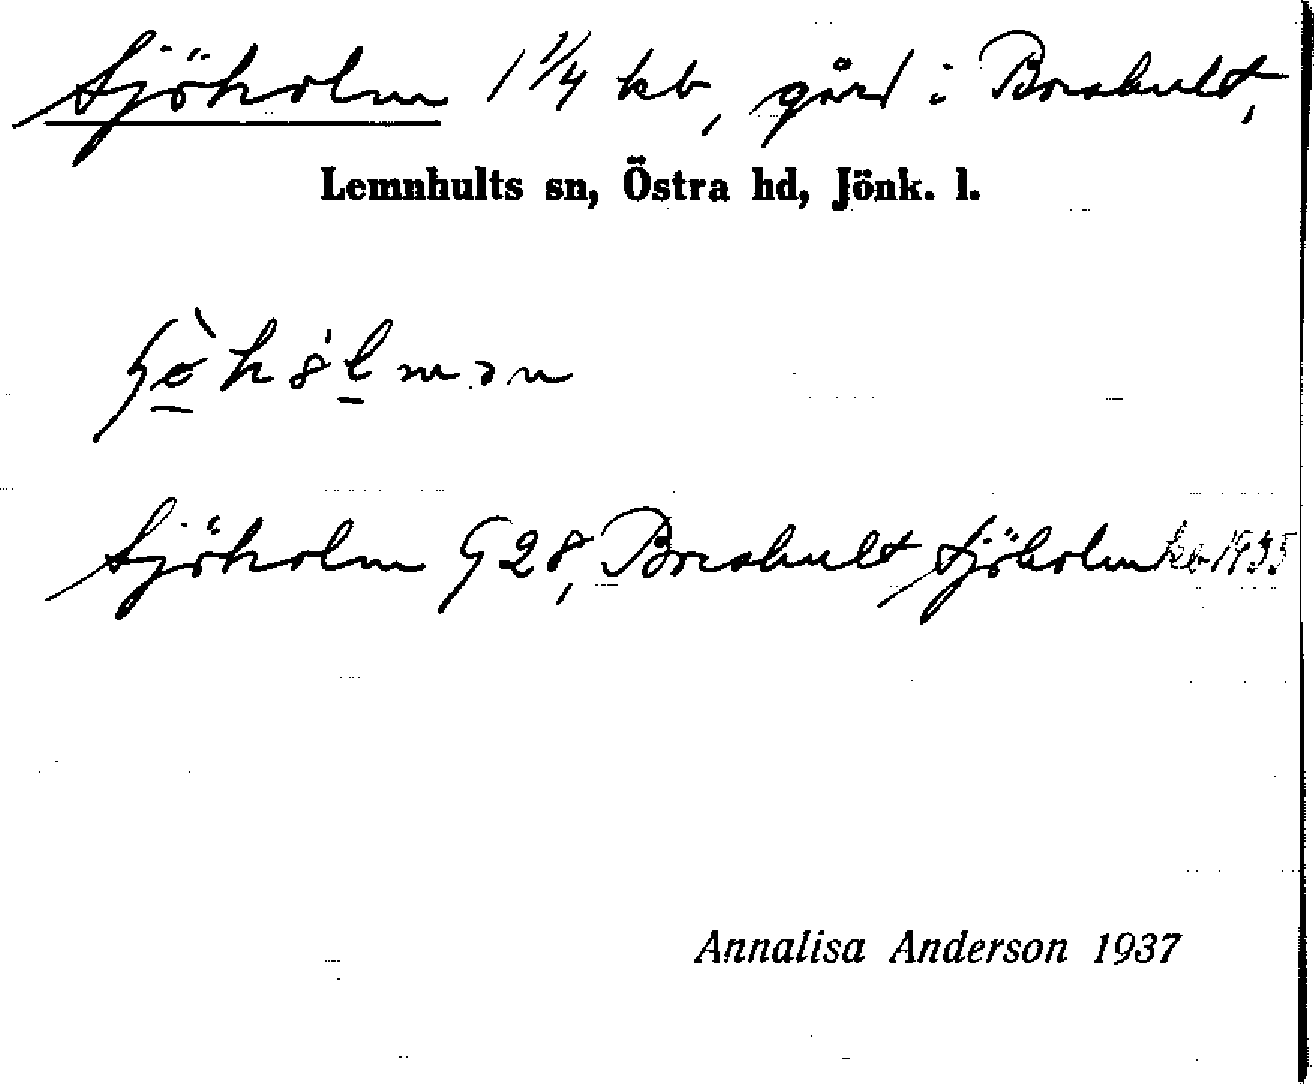 Sjöholm 1 1/4 kb, gård i Boaskult,
Lemnhults sn, Östra hd, Jönk. l.
Sjöholm G 28, Sjöholm kb 1935
Annalisa Anderson 1937